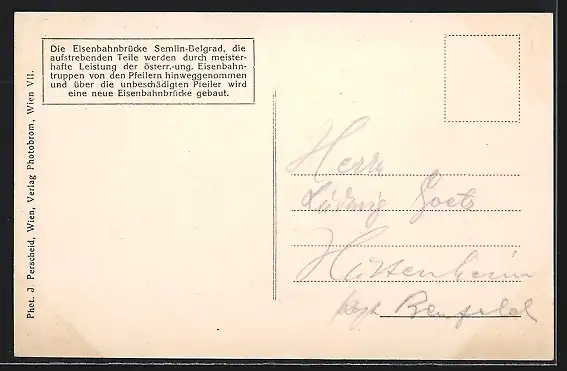 Die Eisenbahnbrücke Semlin-Belgrad, die
aufstrebenden Teile werden durch meister-
hafte Leistung der österr.-ung. Eisenbahn-
truppen von den Pfeilern hinweggenommen
und über die unbeschädigten Pfeiler wird
eine neue Eisenbahnbrücke gebaut.
Phot. J. Perscheid, Wien, Verlag Photobrom, Wien VII.
Herrn
Ludwig Goetz
Hüttenheim
Benfeld